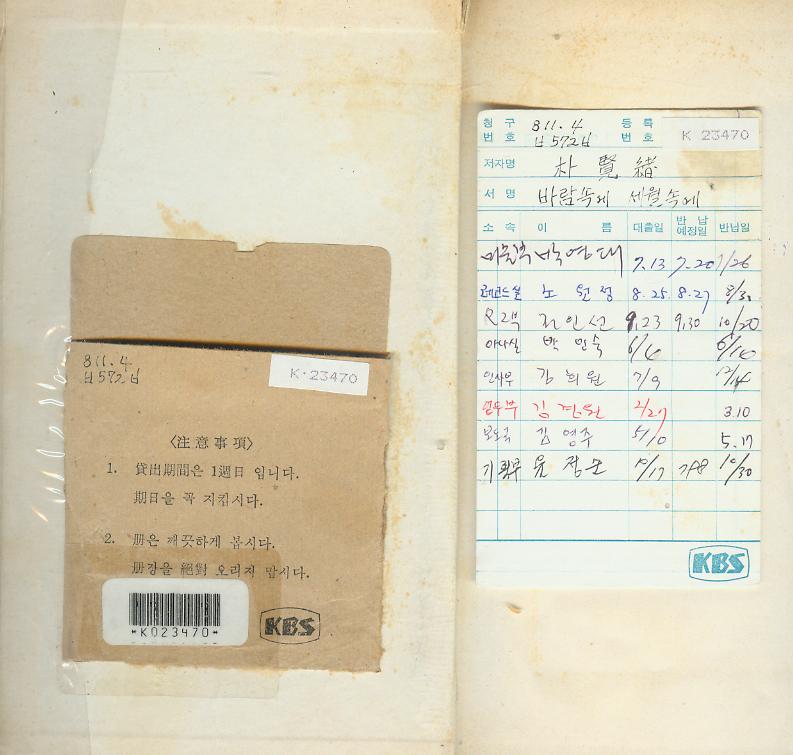 811.4
ㅂ572ㅂ
K·23470
〈注意事項〉
1. 貸出期間은 1週日 입니다.
期日을 꼭 지킵시다.
2. 册은 깨끗하게 봅시다.
册장을 絕對 오리지 맙시다.
*K023470*
KBS
청구번호 811.4 ㅂ572ㅂ 등록번호 K 23470
저자명 朴賢緖
서명 바람속에 세월속에
소속 이름 대출일 반납예정일 반납일
7.13 7.20 7/26
노원정 8.25 8.27 8/30
9.23 9.30 10/20
아나실 박민숙 6/4 6/10
인사부 김희원 7/9 12/14
김찬원 2/27 3.10
보도국 김영주 5/10 5.17
윤정모 10/17 10/30
KBS